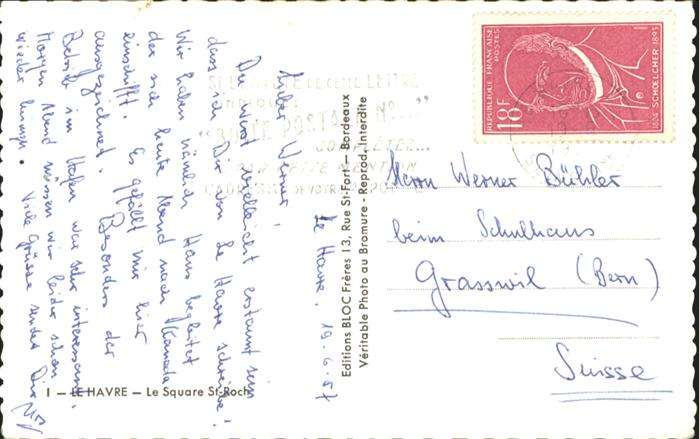 Le Havre, 19.6.57
Lieber Werner!
Du wirst vielleicht erstaunt sein
dass ich Dir von Le Havre schreibe!
Wir haben nämlich Hans begleitet
der sich heute Abend nach Kanada
einschifft. Es gefällt mir hier
ausgezeichnet. Besonders der
Betrieb im Hafen war sehr interessant.
Morgen Abend müssen wir leider schon
wieder heim. Viele Grüsse sendet Dir
1 — LE HAVRE — Le Square St-Roch
Editions BLOC Frères 13, Rue St-Fort — Bordeaux
Véritable Photo au Bromure - Reprod. Interdite
REPUBLIQUE FRANÇAISE
POSTES
18F
1804 SCHOELCHER 1893
"BOITE POSTALE N°..."
COMPLÉTEZ...
PAR CETTE MENTION
Herrn Werner Bühler
beim Schulhaus
Grasswil (Bern)
Suisse